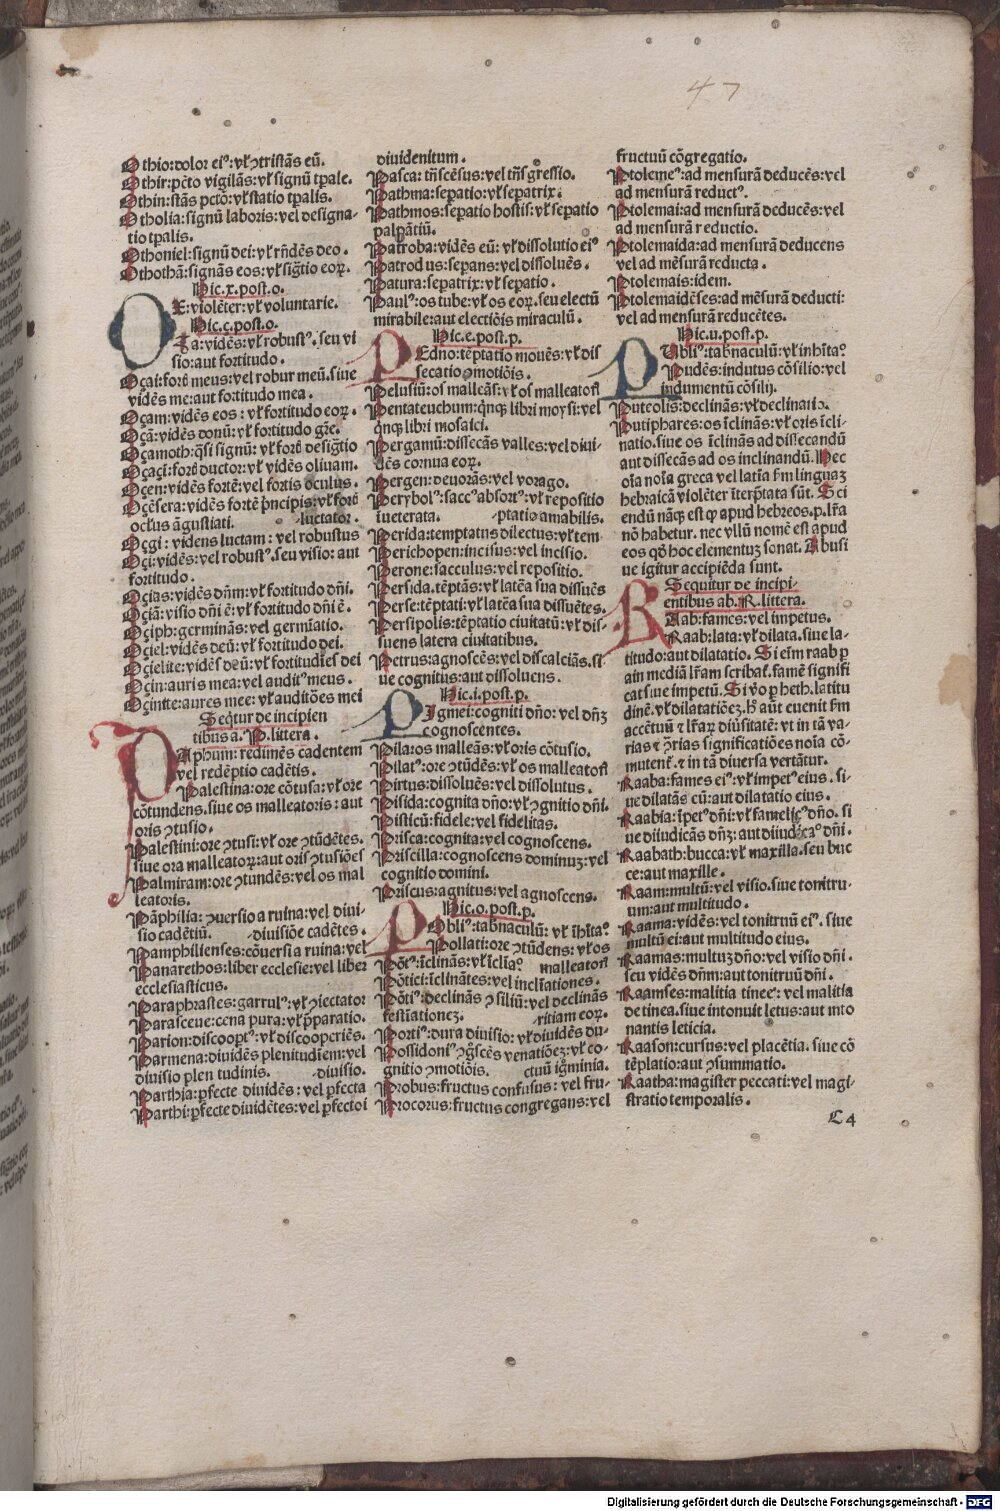 47
Othio:dolor eiꝰ:vł ꝯtristās eū.
Othir:pc̄to vigilās:vł signū tp̄ale.
Othin:stās pc̄tō:vł statio tp̄alis.
Otholia:signū laboris:vel designa-
tio tp̄alis.
Othoniel:signū dei:vł rn̄dēs deo.
Othothā:signās eos:vł sig̅tio eoꝝ.
Hic.x.post.o.
OX:violēter:vł voluntarie.
Hic.ç.post.o.
Ça:vidēs:vł robustꝰ.seu vi
sio:aut fortitudo.
Oçai:fortꝭ meus:vel robur meū.siue
vidēs me:aut fortitudo mea.
Oçam:vidēs eos:vł fortitudo eoꝝ.
Oçā:vidēs donū:vł fortitudo gr̄e.
Oçamoth:q̄si signū:vł fortꝭ desig̅tio
Oçaçi:fortꝭ ductor:vł vidēs oliuam.
Oçen:vidēs fortē:vel fortis oculus.
Oçēsera:vidēs fortē pͥncipis:vł fortꝭ
oclus āgustiati. -luctator.
Oçgi:videns luctam:vel robustus
Oçi:vidēs:vel robustꝰ.seu visio:aut
fortitudo.
Oçias:vidēs dn̄m:vł fortitudo dn̄i.
Oçiā:visio dn̄i ē:vł fortitudo dn̄i ē.
Oçiph:germinās:vel germīatio.
Oçiel:vidēs deū:vł fortitudo dei.
Oçielite:vidēs deū:vł fortitudīes dei
Oçin:auris mea:vel auditꝰ meus.
Oçinite:aures mee:vł auditōes mei
Seqtur de incipien
tibus a.P.littera.
PAphum:redimēs cadentem
vel redēptio cadētis.
Palestina:ore cōtusa:vł ore
cōtundens.siue os malleatoris:aut
oris ꝯtusio.
Palestini:ore ꝯtusi:vł ore ꝯtūdētes.
siue ora malleatoꝝ:aut oris ꝯtusiōes
Palmiram:ore ꝯtundēs:vel os mal
leatoris.
Pāphilia:ꝯuersio a ruina:vel diui-
sio cadētiū. -diuisiōe cadētes.
Pamphilienses:cōuersi a ruina:vel
Panarethos:liber ecclesie:vel liber
ecclesiasticus.
Paraphrastes:garrulꝰ:vł ꝯiectator
Parasceue:cena pura:vł p̄paratio.
Parion:discooptꝰ:vł discoopciēs.
Parmena:diuidēs plenitudīem:vel
diuisio plen tudinis. -diuisio.
Parthia:ꝑfecte diuidēs:vel ꝑfecta
Parthi:ꝑfecte diuidētes:vel ꝑfectoi
diuidenitum.
Pasca:trāscēsus:vel trāsgressio.
Pathma:seꝑatio:vł seꝑatrix.
Pathmos:seꝑatio hostis:vł seꝑatio
palpātiū.
Patroba:vidēs eū:vł dissolutio eiꝰ
Patrod us:seꝑans:vel dissoluēs.
Patura:seꝑatrix:vł seꝑatio.
Paulꝰ:os tube:vł os eoꝝ.seu electū
mirabile:aut electiōis miraculū.
Hic.e.post.p.
PEdno:tēptatio mouēs:vł dis
secatio ꝯmotiōis.
Pelusiū:os malleās:vł os malleatoꝭ
Pentateuchum:qͥnqꝫ libri moysi:vel
qͥnqꝫ libri mosaici.
Pergamū:dissecās valles:vel diui-
dēs cornua eoꝝ.
Pergen:deuorās:vel vorago.
Perybolꝰ:saccꝰ absortꝰ:vł repositio
iueterata. -ptatio amabilis.
Perida:temptatus dilectus:vł tem
Perichopen:incisus:vel incisio.
Perone:sacculus:vel repositio.
Persida.tēptās:vł latēa sua dissuēs
Perse:tēptati:vł latēa sua dissuētes.
Persipolis:tēptatio ciuitatū:vł dis-
suens latera ciuitatibus.
Petrus:agnoscēs:vel discalciās.si-
ue cognitus:aut dissoluens.
Hic.i.post.p.
PIgmei:cogniti dn̄o:vel dn̄ꝫ
cognoscentes.
Pila:os malleās:vł oris cōtusio.
Pilatꝰ:ore ꝯtūdēs:vł os malleatoꝭ
Pirtus:dissoluēs:vel dissolutus.
Pisida:cognita dn̄o:vł ꝯgnitio dn̄i.
Pisticū:fidele:vel fidelitas.
Prisca:cognita:vel cognoscens.
Priscilla:cognoscens dominuꝫ:vel
cognitio domini.
Priscus:agnitus:vel agnoscens.
Hic.o.post.p.
PObliꝰ:tab̄naculū:vł īhītaꝰ
Pollati:ore ꝯtūdens:vł os
Pōtꝰ:īclināns:vł īclīaꝰ malleatoꝭ
Pōtici:īclinātes:vel inclīationes.
Pōtiꝰ:declināns ꝯsiliū:vel declināns
festiationeꝫ. -ritiam eoꝝ.
Portiꝰ:dura diuisio:vł diuidēs du-
Possidoniꝰ ꝯgͦscēs venatiōeꝫ:vł co-
gnitio ꝯmotiōis. ctuū igͦminia.
Probus:fructus confusus:vel fru-
Procorus:fructus congregans:vel
fructuū cōgregatio.
Ptolemeꝰ:ad mensurā deducēs:vel
ad mensurā reductꝰ.
Ptolemai:ad mensurā deducēs:vel
ad mensurā reductio.
Ptolemaida:ad mensurā deducens
vel ad mēsurā reducta.
Ptolemais:idem.
Ptolemaidēses:ad mēsurā deducti:
vel ad mensurā reducētes.
Hic.u.post.p.
PUbliꝰ:tab̄naculū:vł inhītaꝰ
Pudēs:indutus cōsilio:vel
indumentū cōsilij.
Puteolis:declināns:vł declinatio.
Putiphares:os īclināns:vł oris īcli-
natio.siue os īclināns ad dissecandū
aut dissecās ad os inclinandū. Hec
oīa noīa greca vel latīa ẜm linguaꝫ
hebraicā violēter īterp̄tata sūt. Sci
endū nāqꝫ est qꝙ apud hebreos.p.lr̄a
nō habetur.nec vllū nomē est apud
eos qꝙ hoc elementuꝫ sonat. Abusi
ue igitur accipiēda sunt.
Sequitur de incipi-
entibus ab.R.littera.
RAab:fames:vel impetus.
Raab:lata:vł dilata.siue la-
titudo:aut dilatatio. Si eīm raab ꝑ
ain mediā lr̄am scribat̄.famē signifi
cat siue impetū. Si v̄o ꝑ heth.latitu
dinē.vł dilatatiōeꝫ.h̄ aūt euenit ẜm
accētuū ⁊ lr̄aꝝ diu̇sitatē:vt in tā va-
rias ⁊ ꝯtrias significatiōes noīa cō-
mutent̄.⁊ in tā diuersa vertātur.
Raaba:fames eiꝰ:vł impetꝰ eius.si-
ue dilatās eū:aut dilatatio eius.
Raabia:īpetꝰ dn̄i:vł famelicꝰ dn̄o.si
ue diiudicās dn̄ꝫ:aut diiudicaꝰ dn̄i.
Raabath:bucca:vł maxilla.seu buc
ce:aut maxille.
Raam:multū:vel visio.siue tonitru-
um:aut multitudo.
Raama:vidēs:vel tonitruū eiꝰ.siue
multū ei:aut multitudo eius.
Raamas:multuꝫ dn̄o:vel visio dn̄i.
seu vidēs dn̄m:aut tonitruū dn̄i.
Raamses:malitia tinee:vel malitia
de tinea.siue intonuit letus:aut into
nantis leticia.
Raason:cursus:vel placētia.siue cō
tēplatio:aut ꝯsummatio.
Raatha:magister peccati:vel magi-
stratio temporalis.
C4
Digitalisierung gefördert durch die Deutsche Forschungsgemeinschaft - DFG